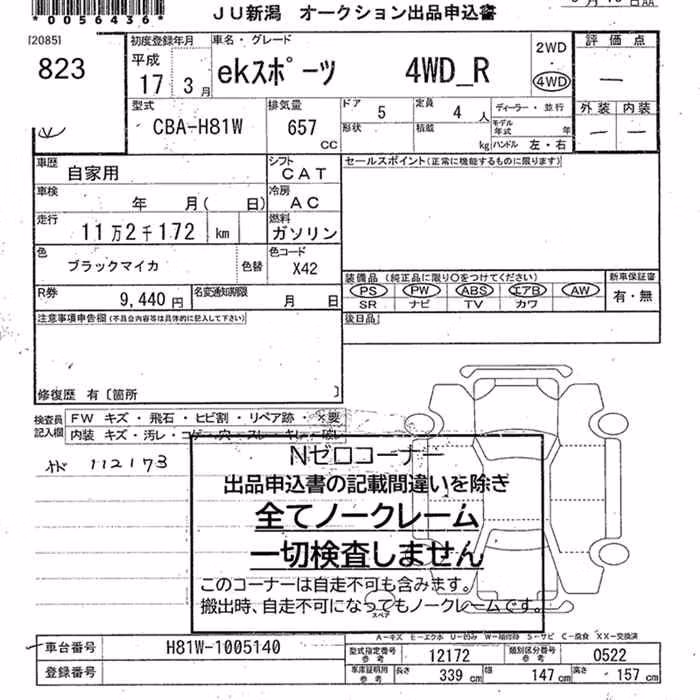 *0056436*
JU新潟 オークション出品申込書
[2085]
823
初度登録年月
平成
17 3月
車名・グレード
ekスポーツ 4WD_R
2WD
4WD
評価点
—
型式
CBA-H81W
排気量
657
CC
ドア 5
定員 4 人
ディーラー・並行
形状
積載 kg
モデル年式 年
ハンドル 左・右
外装 内装
— —
車歴
自家用
シフト
CAT
セールスポイント(正常に機能するものに限ります)
車検
年 月( 日)
冷房
AC
走行
11万2千172 km
燃料
ガソリン
色
ブラックマイカ
色替
色コード
X42
装備品 (純正品に限り○をつけてください)
新車保証書
PS PW ABS エアB AW
有・無
SR ナビ TV カワ
R券
9,440 円
名変通知期限
月 日
後日品
注意事項申告欄(不具合内容等は具体的に記入して下さい)
修復歴 有〔箇所 〕
検査員記入欄
FW キズ・飛石・ヒビ割・リペア跡・×要
内装 キズ・汚レ・コゲ・穴・スレ・キレ・破レ
112173
Nゼロコーナー
出品申込書の記載間違いを除き
全てノークレーム
一切検査しません
このコーナーは自走不可も含みます。
搬出時、自走不可になってもノークレームです。
スペア
A-キズ E-エクボ U-凹み W-補修跡 S-サビ C-腐食 XX-交換済
車台番号
H81W-1005140
型式指定番号
参考
12172
類別区分番号
参考
0522
登録番号
車庫証明用
参考
長さ 339 cm
幅 147 cm
高さ 157 cm